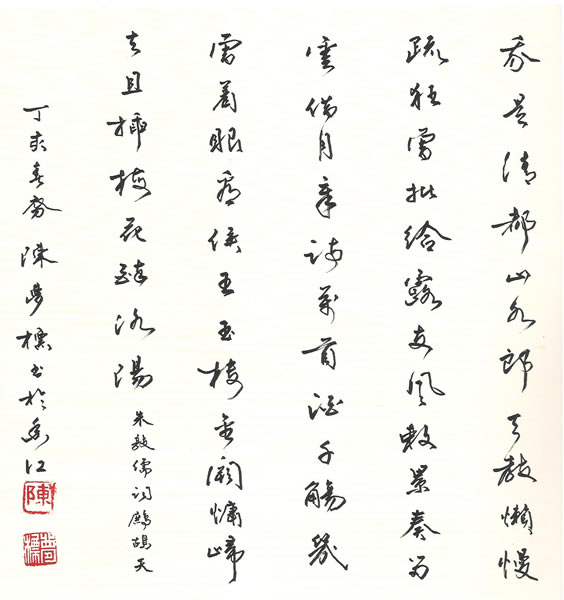 我是清都山水郎天教懶慢
疏狂曾批給露支風敕累奏留
雲借月章詩萬首酒千觴幾
曾著眼看侯王玉樓金闕慵歸
去且插梅花醉洛陽 朱敦儒詞鷓鴣天
丁亥春 陳夢標書於香江
陳
夢標